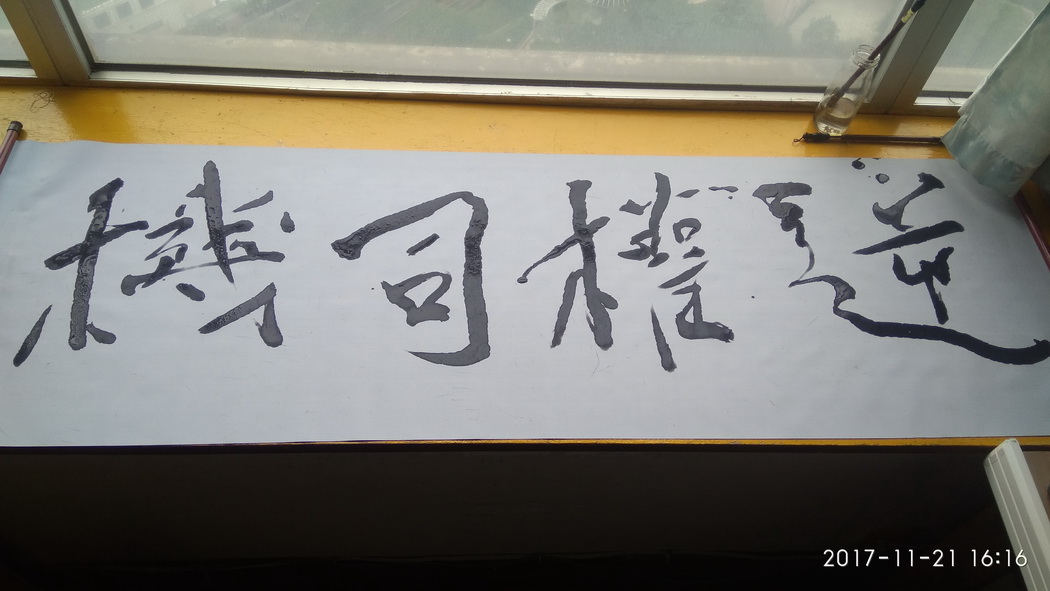 逆權司機
2017-11-21 16:16